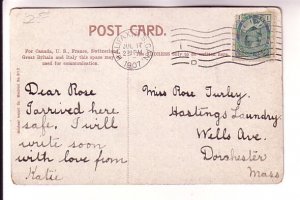 25
POST CARD.
For Canada, U. S., France, Switzerland,
Great Britain and Italy this space may
used for communication.
JUL 17
1907
Dear Rose
I arrived here
safe. I will
write soon
with love from
Katie
Miss Rose Turley.
Hastings Laundry
Wells Ave.
Dorchester
Mass